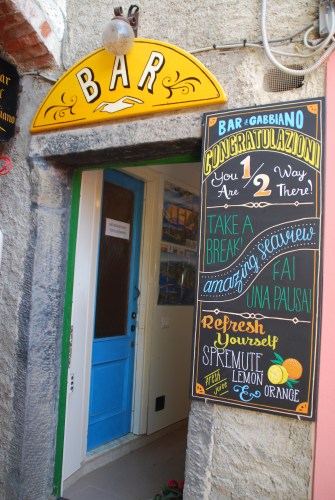 BAR
BAR IL GABBIANO
CONGRATULAZIONI
You 1/2 Way
Are There!
TAKE A
BREAK!
amazing seaview
FAI
UNA PAUSA!
Refresh
Yourself
SPREMUTE
LEMON
Fresh Juice & ORANGE